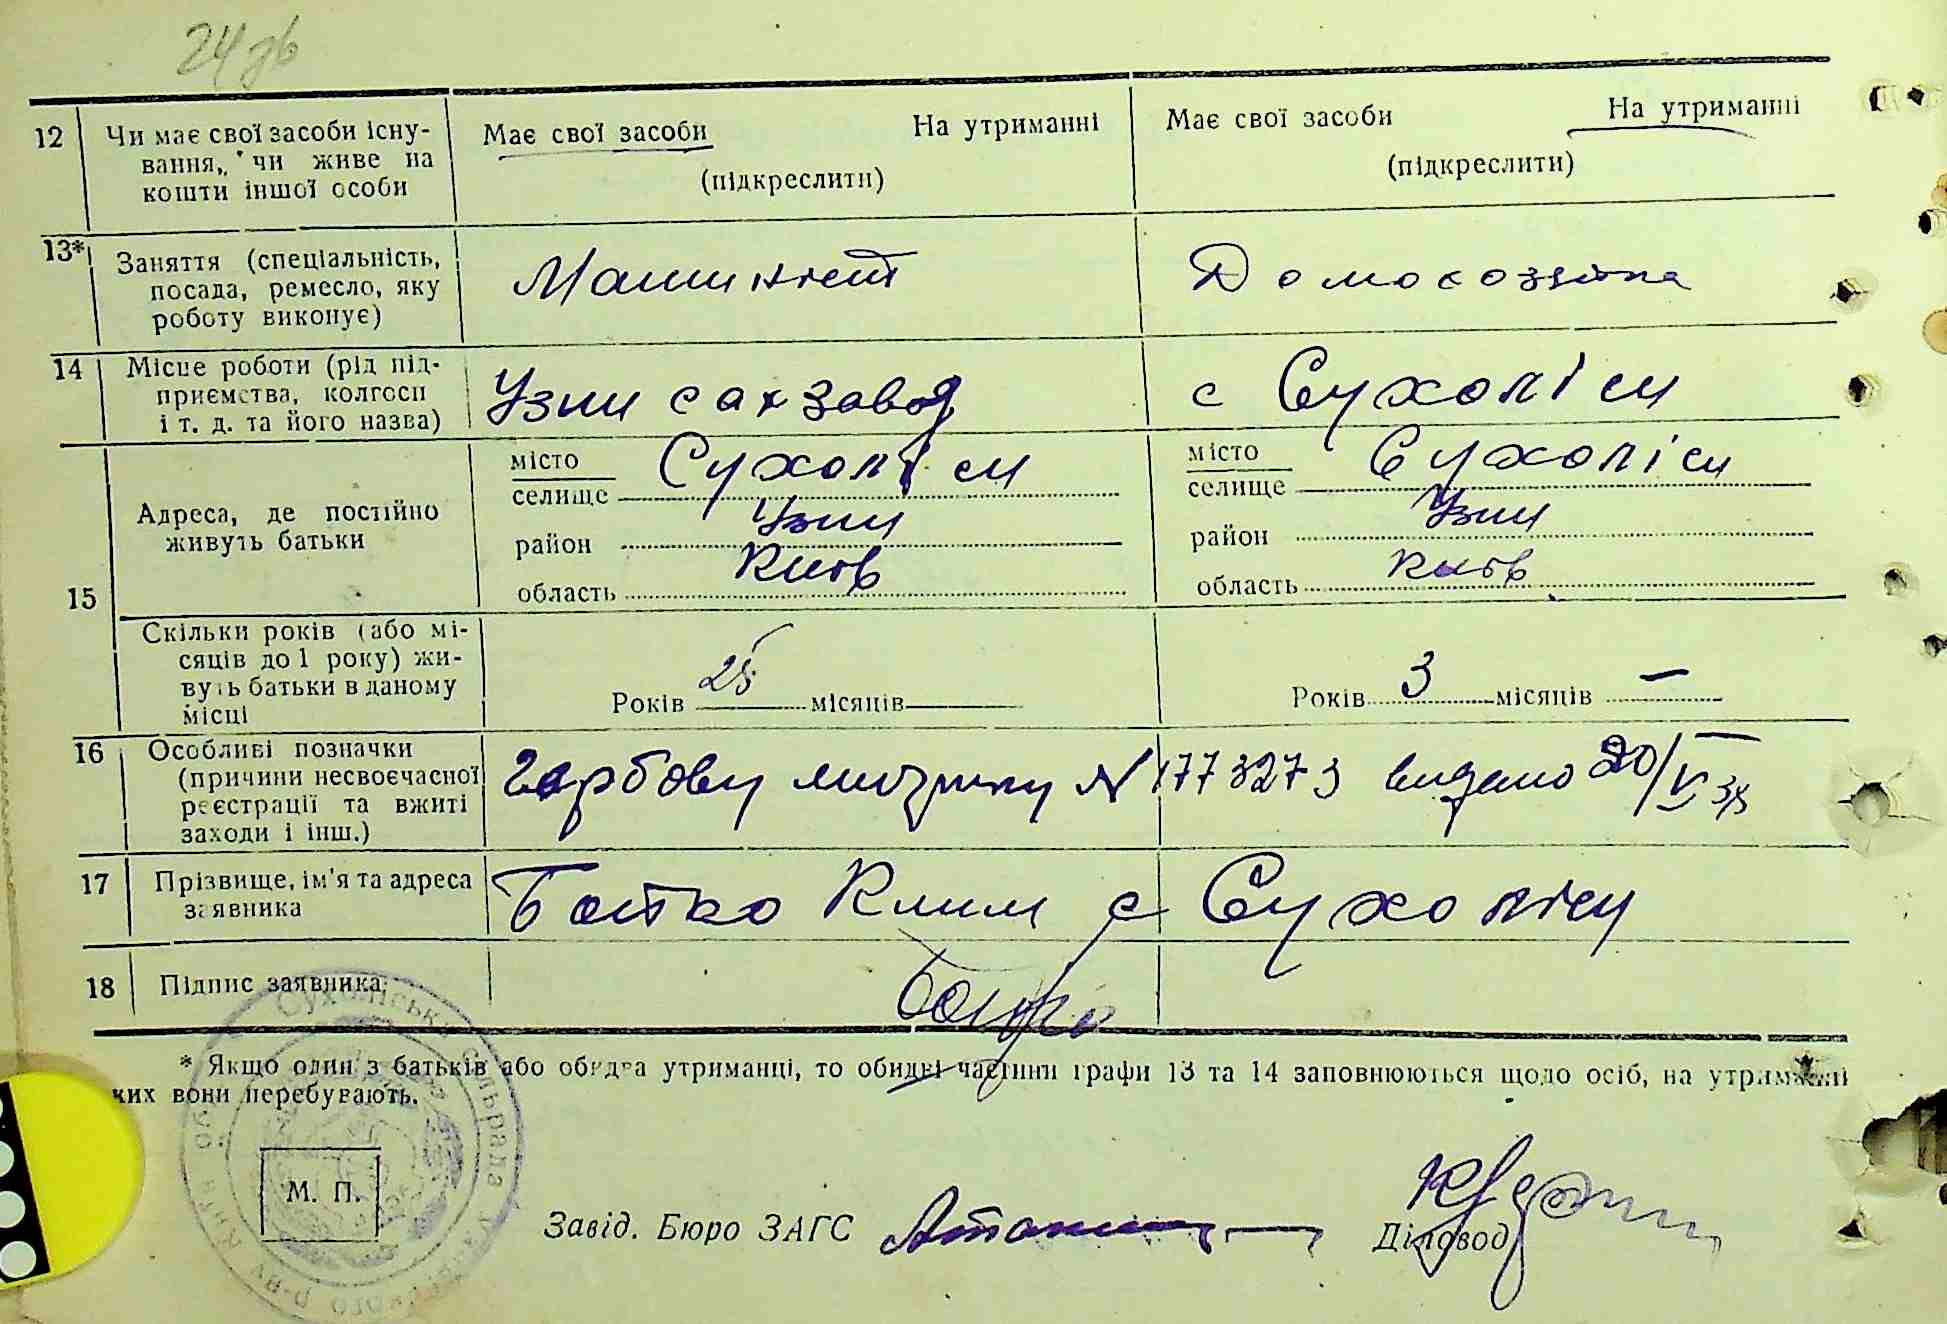 24 зв
12 Чи має свої засоби існу- Має свої засоби На утриманні Має свої засоби На утриманні
вання, чи живе на (підкреслити) (підкреслити)
кошти іншої особи
13* Заняття (спеціальність, Машиніст Домохозяйка
посада, ремесло, яку
роботу виконує)
14 Місце роботи (рід під- Узин сахзавод с Сухоліси
приємства, колгосп
і т. д. та його назва)
15 Адреса, де постійно місто Сухоліси місто Сухоліси
живуть батьки селище селище
район Узин район Узин
область Київ область Київ
Скільки років (або мі-
сяців до 1 року) жи-
вуть батьки в даному Років 25 місяців Років 3 місяців —
місці
16 Особливі позначки гербову N 1773273 видано 20/V 38
(причини несвоєчасної
реєстрації та вжиті
заходи і інш.)
17 Прізвище, ім'я та адреса Батко Клим с Сухоліси
заявника
18 Підпис заявника
* Якщо один з батьків або обидва утриманці, то обидві частини графи 13 та 14 заповнюються щодо осіб, на утриманні
ких вони перебувають.
М. П.
Завід. Бюро ЗАГС Діловод